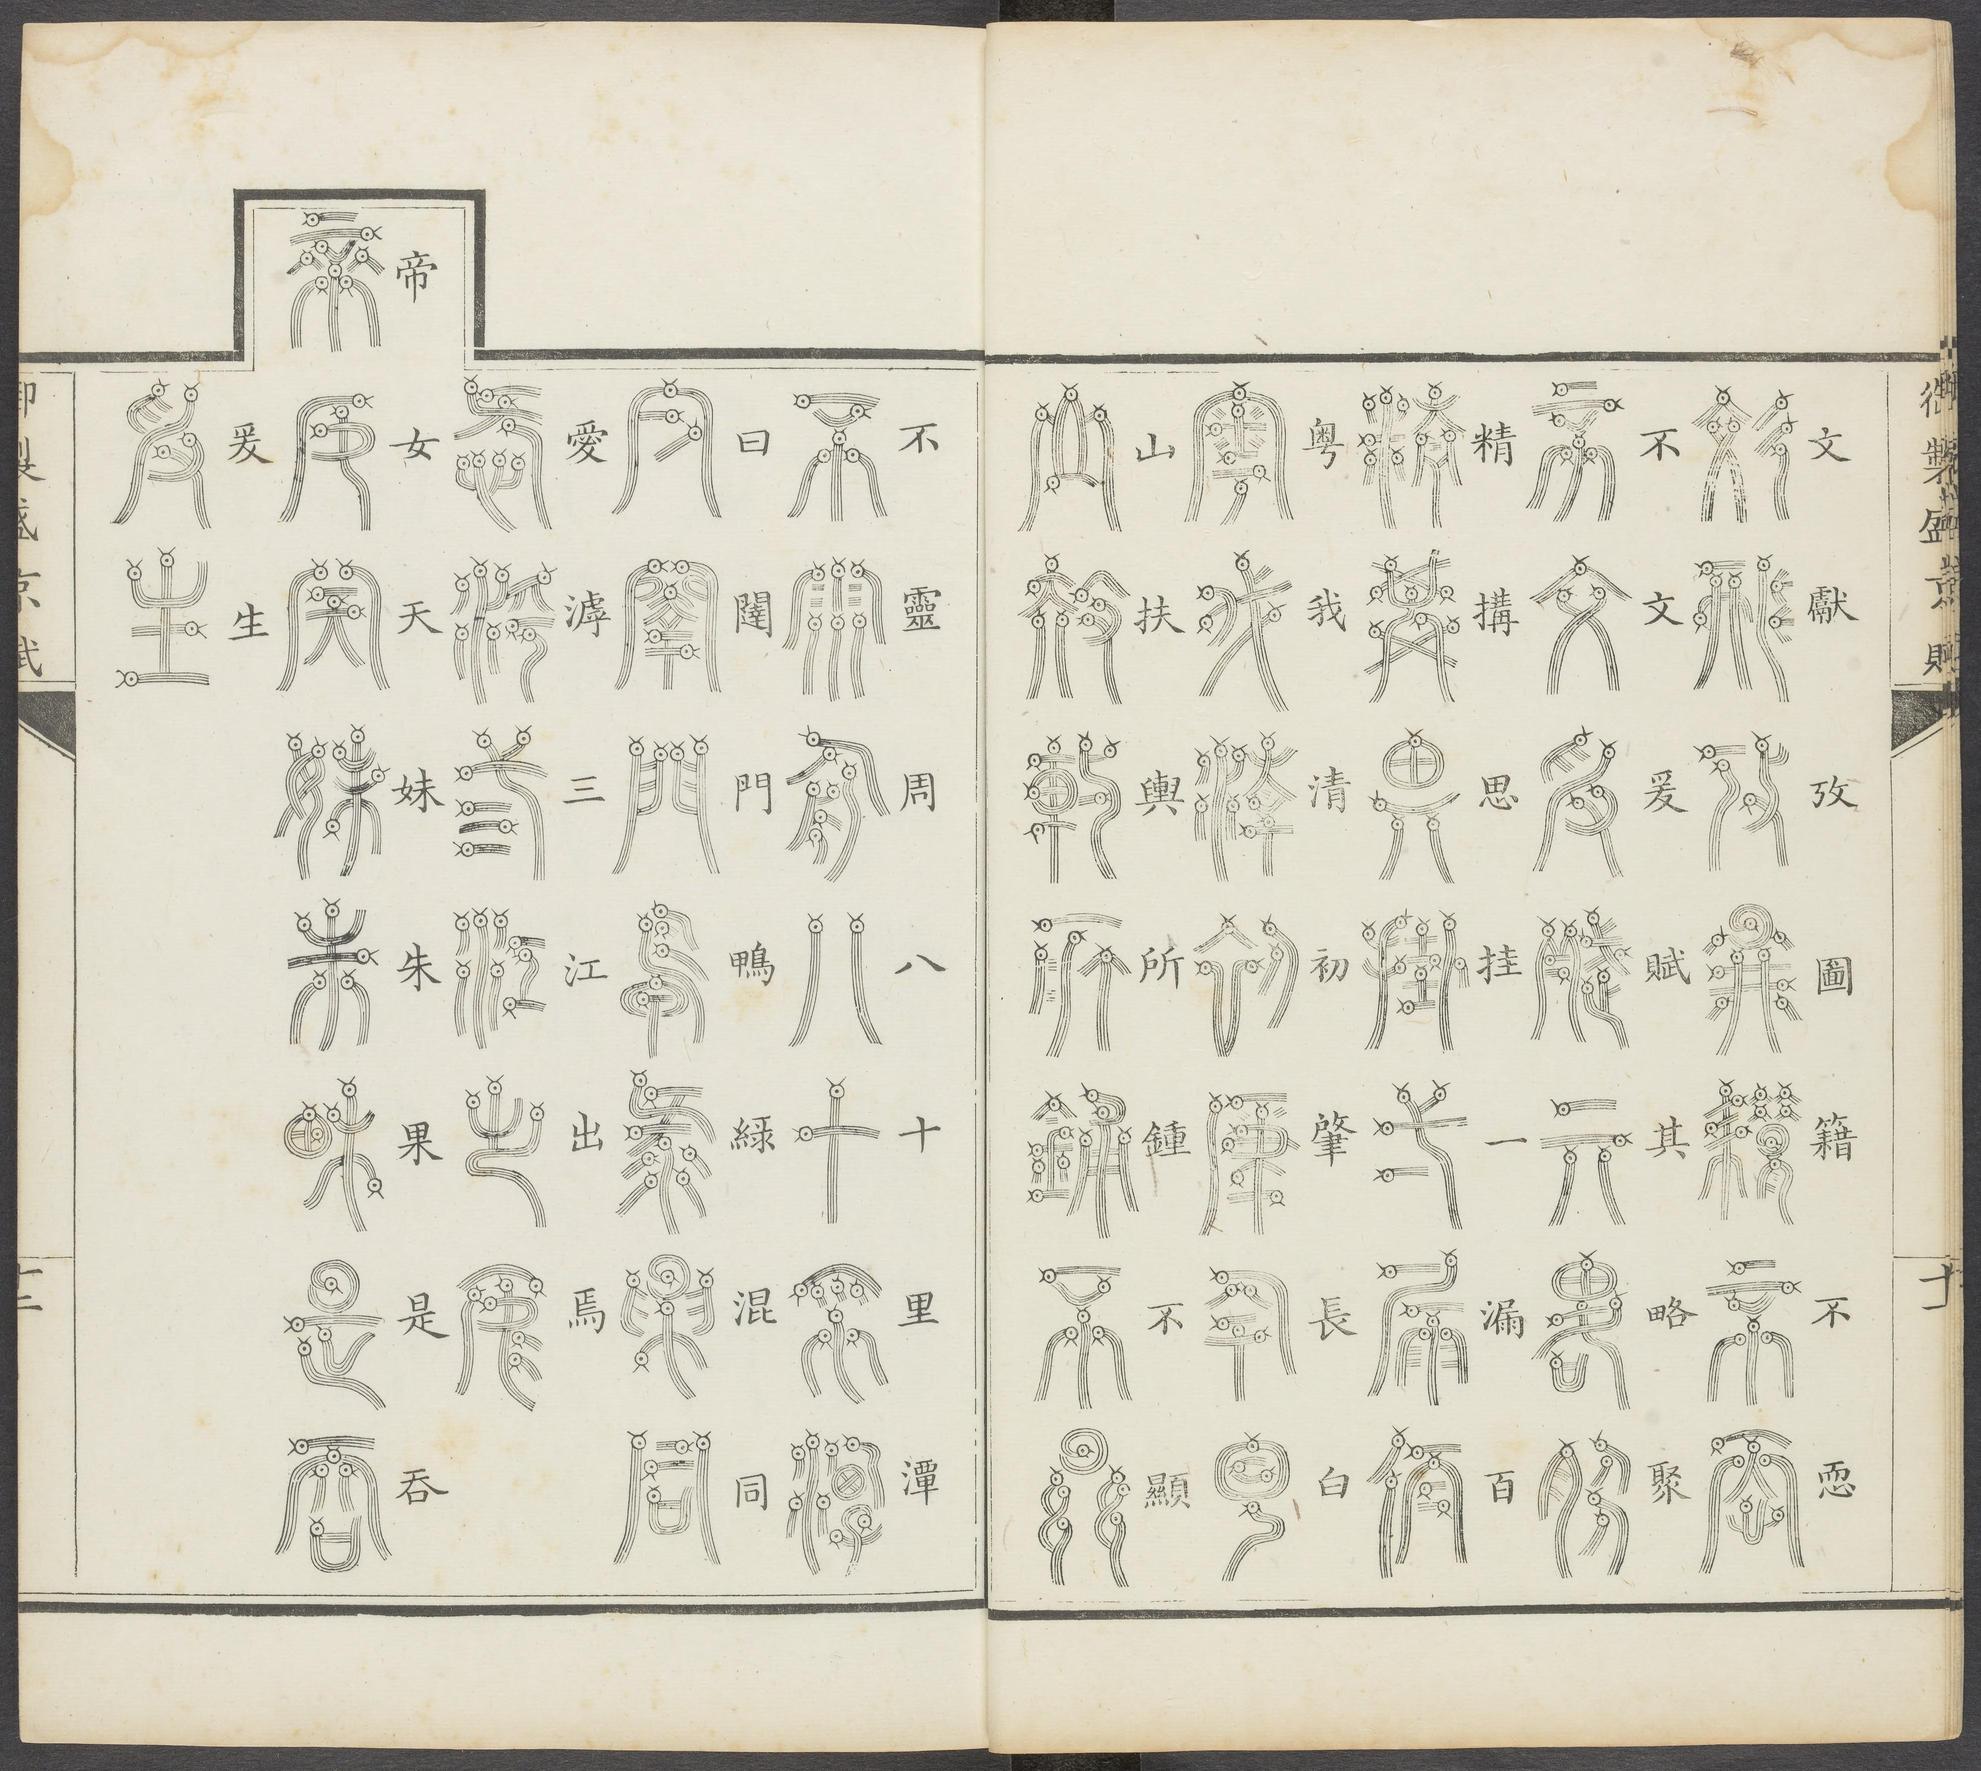 御製盛京賦
文獻攷圖籍不恧
不文爰賦其略聚
精搆思挂一漏百
粤我清初肇長白
山扶輿所鍾不顯
不靈周八十里潭
曰闥門鴨綠混同
愛滹三江出焉
帝女天妹朱果是吞
爰生
御製盛京賦